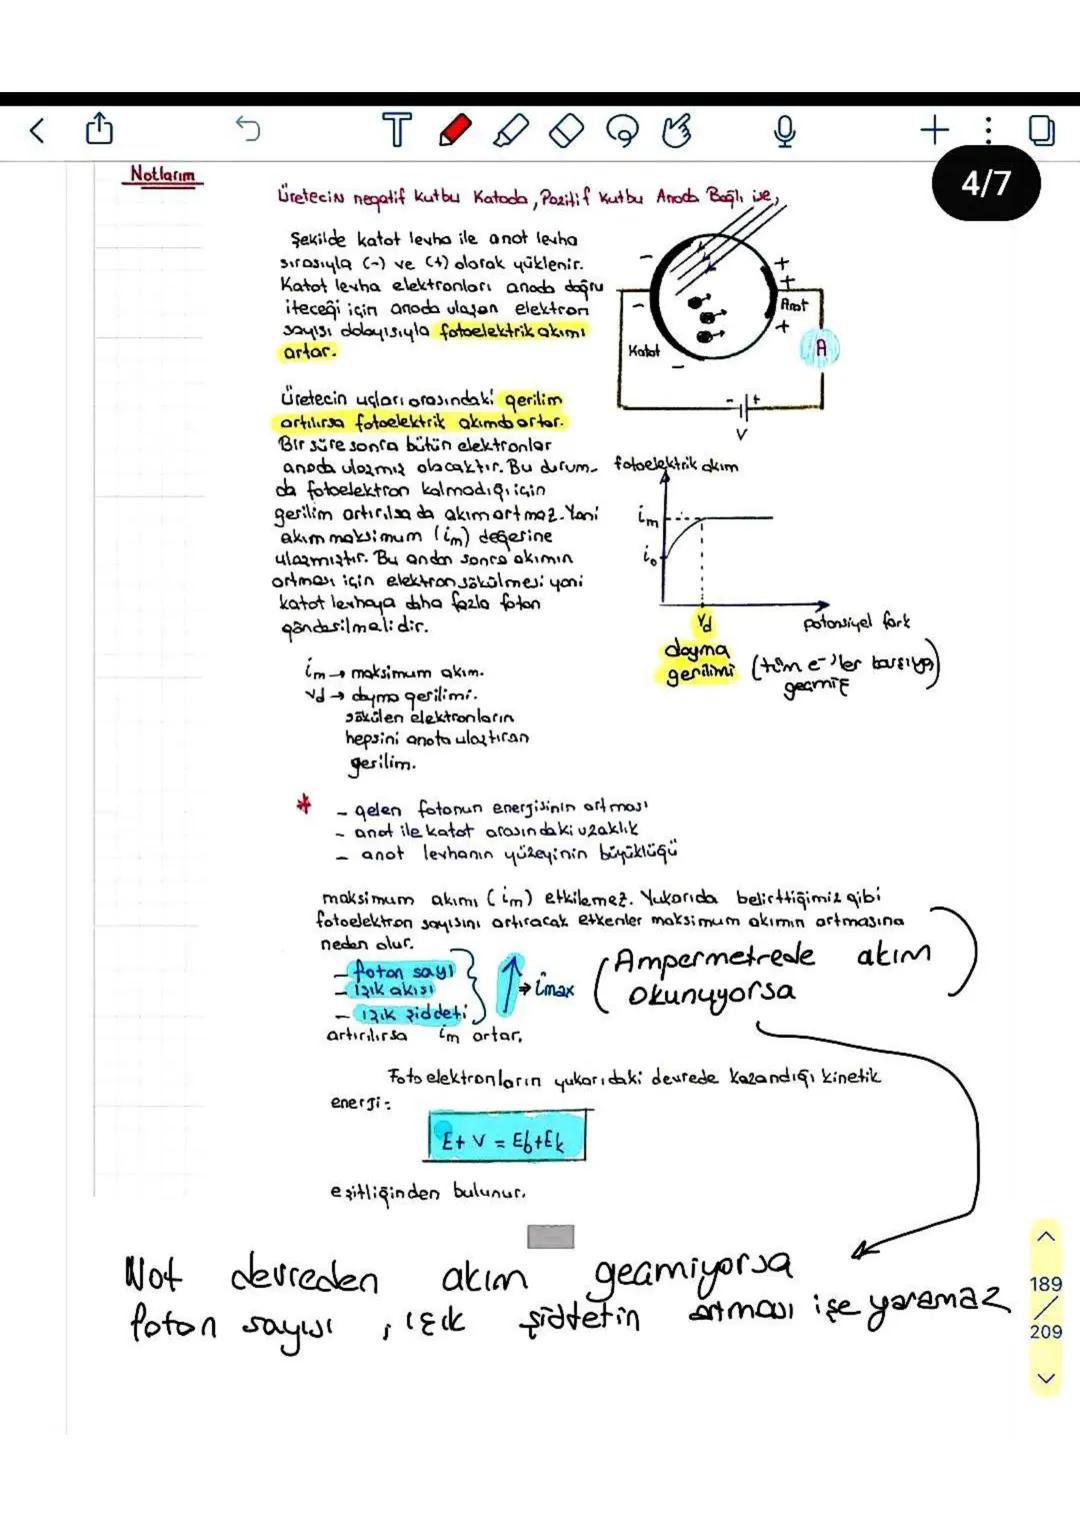 4/7
Notlarım
Üretecin negatif kutbu Katoda, Pozitif kutbu Anoda Bağlı ise,
Şekilde katot levha ile anot levha
sırasıyla (-) ve (+) olarak yüklenir.
Katot levha elektronları anoda doğru
iteceği için anoda ulaşan elektron
sayısı dolayısıyla fotoelektrik akımı
artar.
- - - + + + Anot
Katot
A
- +
V
Üretecin uçları arasındaki gerilim
artılırsa fotoelektrik akımda artar.
Bir süre sonra bütün elektronlar
anoda ulaşmış olacaktır. Bu durum-
da fotoelektron kalmadığı için
gerilim artırılsa da akım artmaz. Yani
akım maksimum (im) değerine
ulaşmıştır. Bu andan sonra akımın
artması için elektron sökülmesi yani
katot levhaya daha fazla foton
gönderilmelidir.
fotoelektrik akım
im
i₀
Vd
potansiyel fark
doyma
gerilimi
(tüm e⁻'ler karşıya
geçmiş)
im → maksimum akım.
Vd → doyma gerilimi.
sökülen elektronların
hepsini anota ulaştıran
gerilim.
* - gelen fotonun energisinin artması
- anot ile katot arasındaki uzaklık
- anot levhanın yüzeyinin büyüklüğü
maksimum akımı (im) etkilemez. Yukarıda belirttiğimiz gibi
fotoelektron sayısını artıracak etkenler maksimum akımın artmasına
neden olur.
- foton sayı
- ışık akısı
- ışık şiddeti
} ↑ → imax
(Ampermetrede akım
okunuyorsa)
artırılırsa im artar.
Foto elektronların yukarıdaki devrede kazandığı kinetik
energi:
E+ V = Eb+Ek
eşitliğinden bulunur.
Not devreden akım geçmiyorsa
foton sayısı, ışık şiddetin artması işe yaramaz
189
/
209